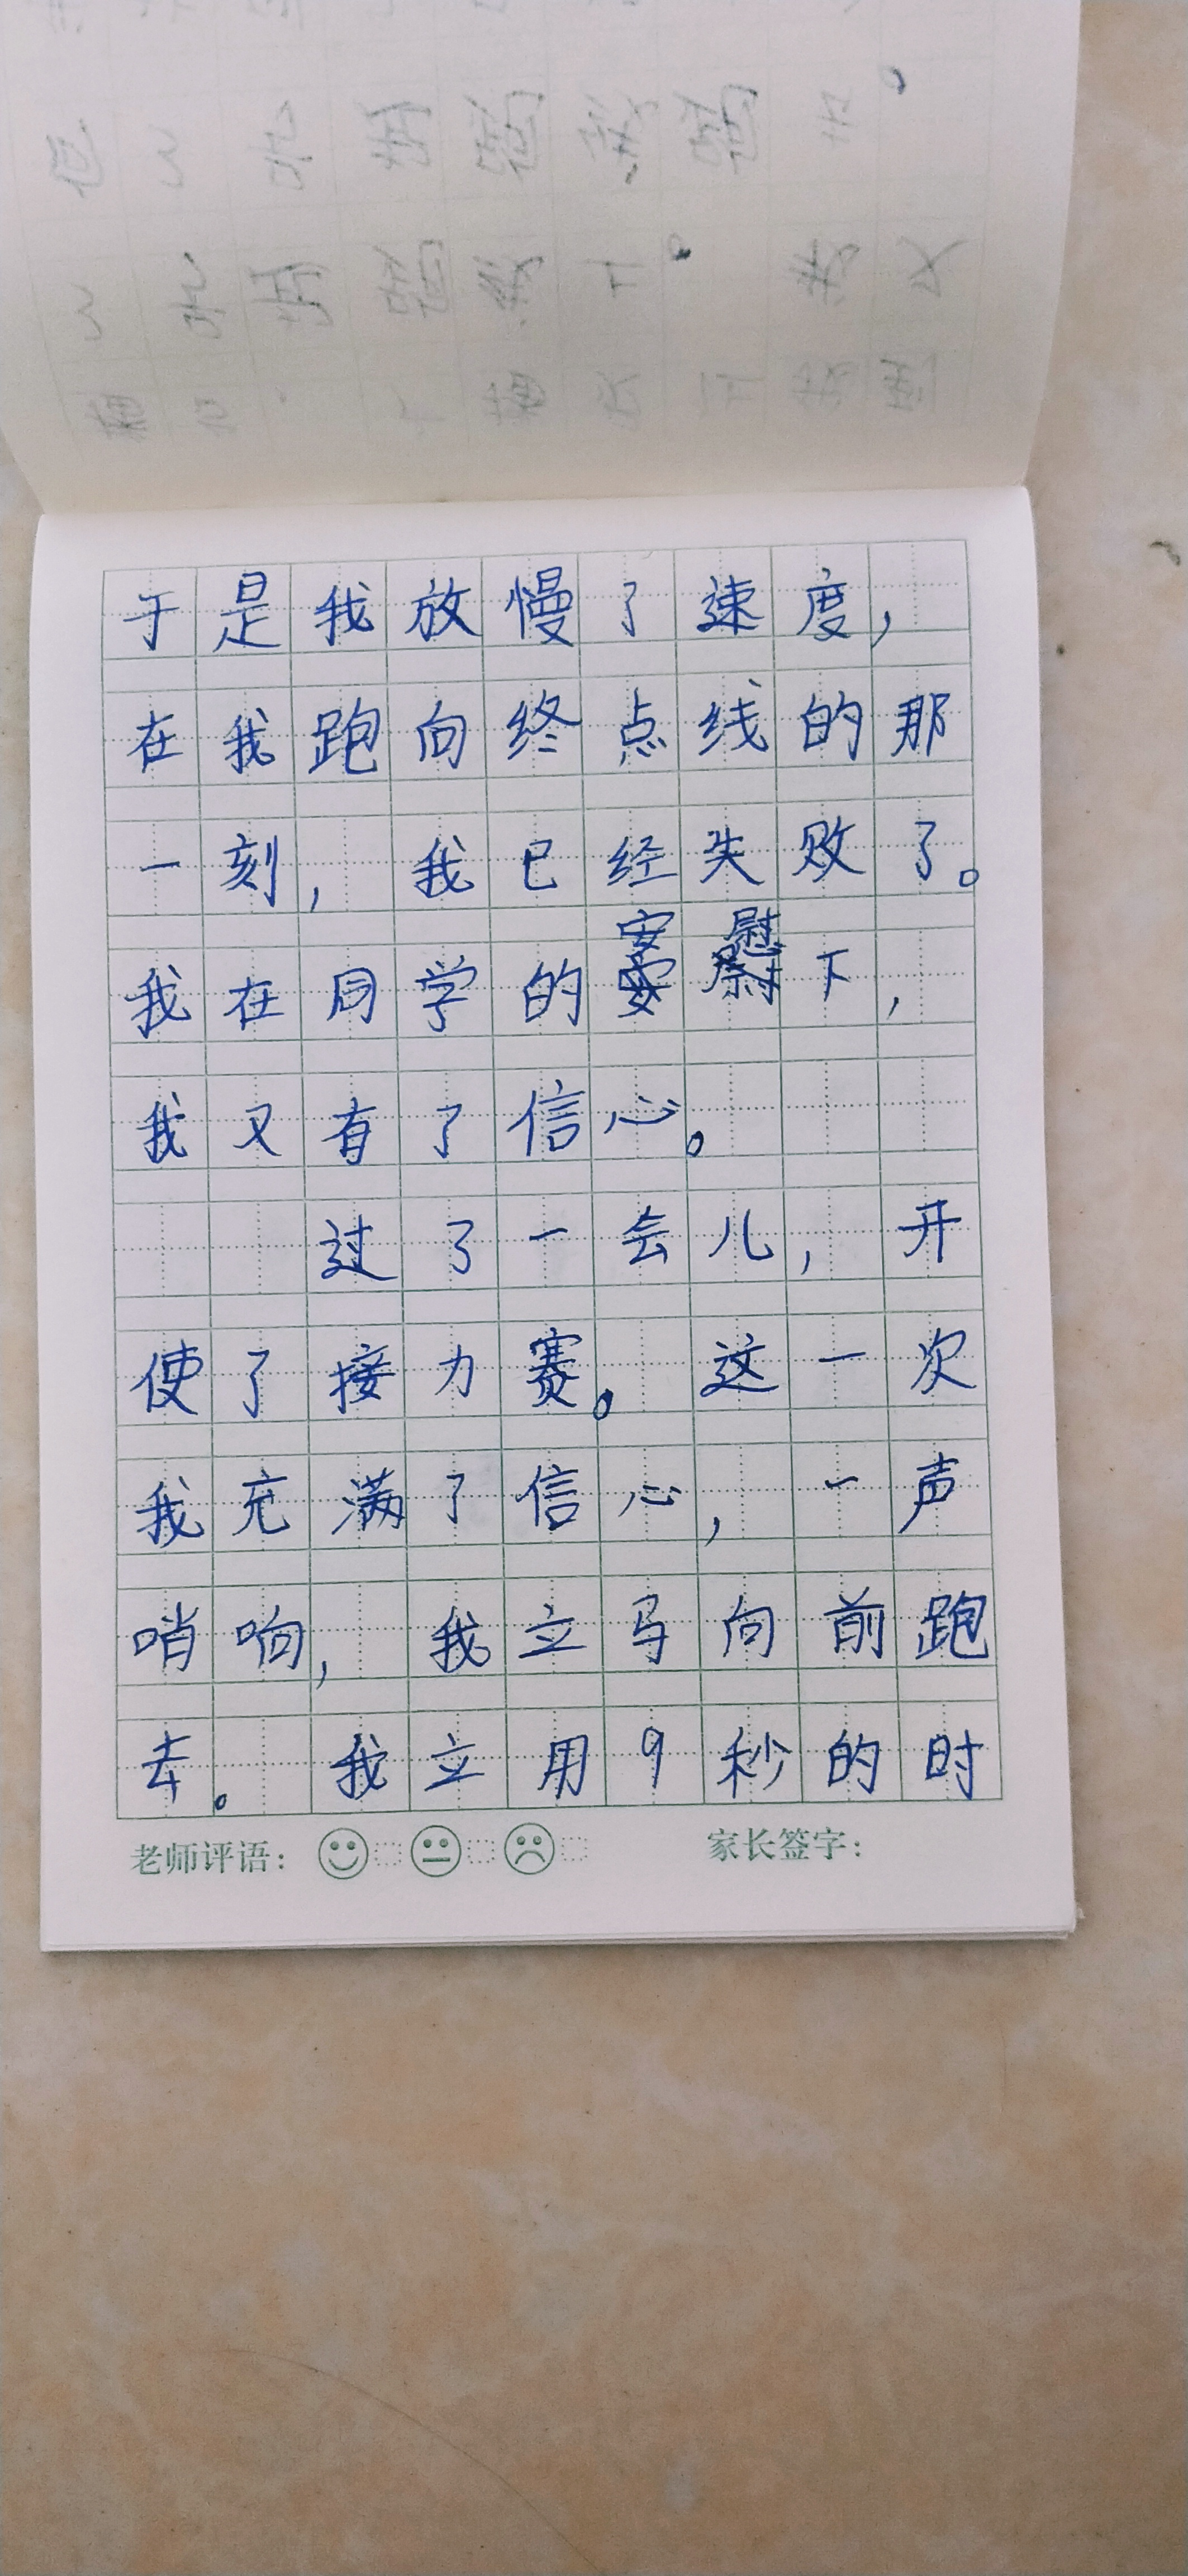 于是我放慢了速度，
在我跑向终点线的那
一刻，我已经失败了。
我在同学的安慰下，
我又有了信心。
过了一会儿，开
使了接力赛。这一次
我充满了信心，一声
哨响，我立马向前跑
去。我立用9秒的时
老师评语： 家长签字：